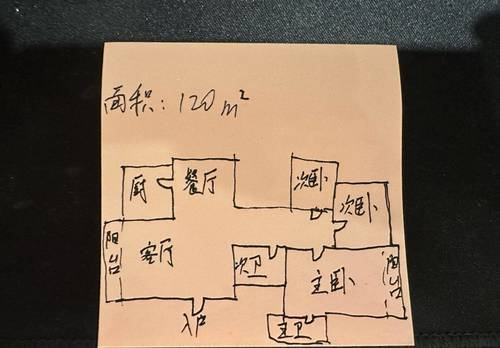 面积：120m²
厨 餐厅 次卧
次卧
阳台 客厅 次卫 主卧 阳台
入户 主卫